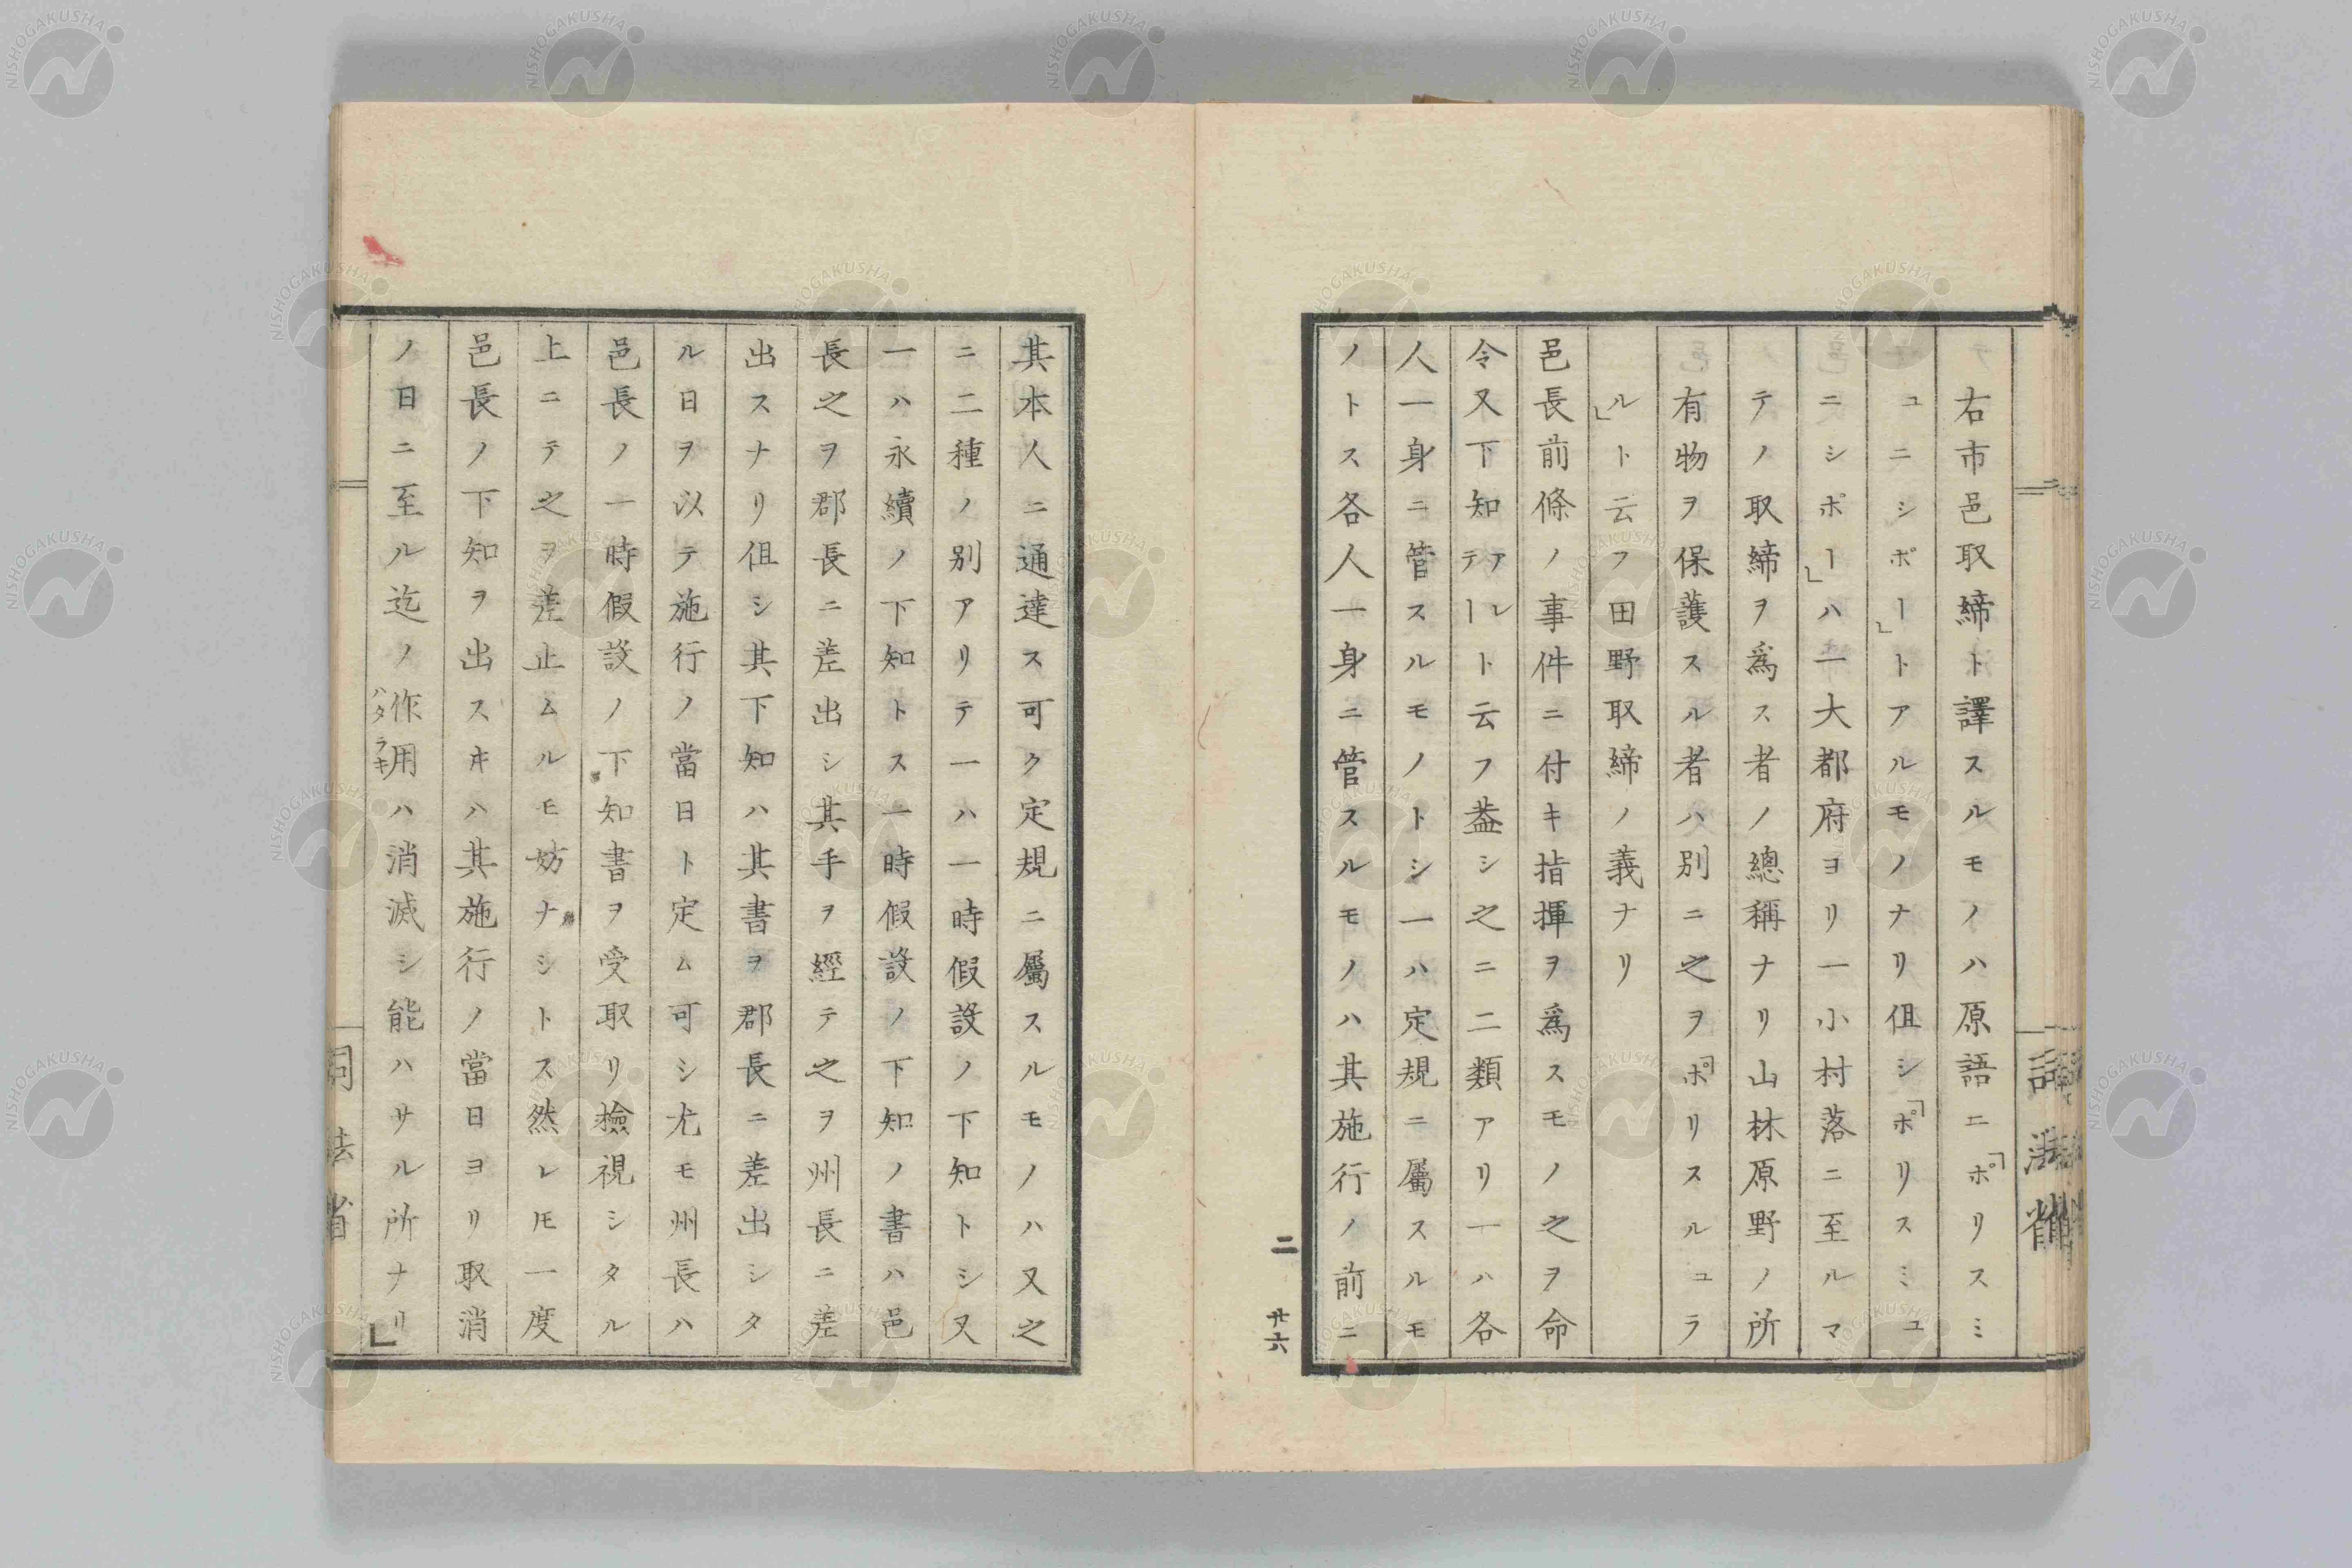 右市邑取締ト譯スルモノハ原語ニ「ポリスミ
ュニシポー」トアルモノナリ伹シ「ポリスミュ
ニシポー」ハ一大都府ヨリ一小村落ニ至ルマ
テノ取締ヲ爲ス者ノ總稱ナリ山林原野ノ所
有物ヲ保護スル者ハ別ニ之ヲ「ポリスルュラ
ル」ト云フ田野取締ノ義ナリ
邑長前條ノ事件ニ付キ指揮ヲ爲スモノ之ヲ命
令又下知アレテートト云フ葢シ之ニ二類アリ一ハ各
人一身ニ管スルモノトシ一ハ定規ニ屬スルモ
ノトス各人一身ニ管スルモノハ其施行ノ前ニ
二
廿六
其本人ニ通達ス可ク定規ニ屬スルモノハ又之
ニ二種ノ別アリテ一ハ一時假設ノ下知トシ又
一ハ永續ノ下知トス一時假設ノ下知ノ書ハ邑
長之ヲ郡長ニ差出シ其手ヲ經テ之ヲ州長ニ差
出スナリ伹シ其下知ハ其書ヲ郡長ニ差出シタ
ル日ヲ以テ施行ノ當日ト定ム可シ尤モ州長ハ
邑長ノ一時假設ノ下知書ヲ受取リ撿視シタル
上ニテ之ヲ差止ムルモ妨ナシトス然レ𪜈一度
邑長ノ下知ヲ出スキハ其施行ノ當日ヨリ取消
ノ日ニ至ル迄ノ作用ハタラキハ消滅シ能ハサル所ナリ」
司法省
NISHOGAKUSHA